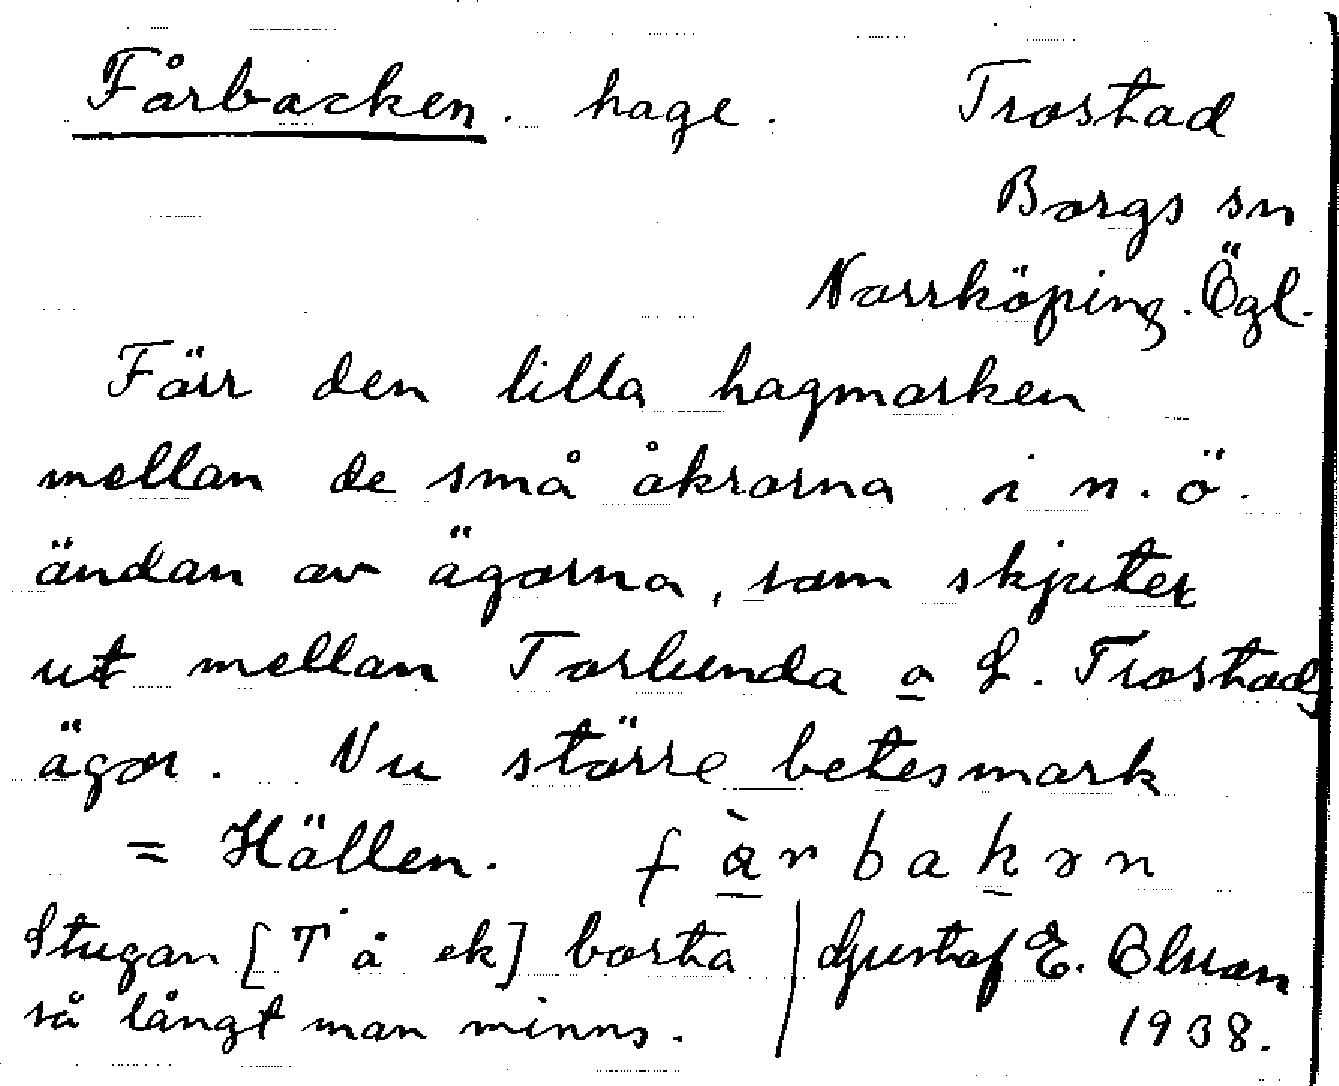 Fårbacken. hage. Trostad
Borgs sn
Norrköping. Ögl.
Förr den lilla hagmarken
mellan de små åkrarna i n. ö.
ändan av ägorna, som skjuter
ut mellan Torlunda o L. Trostads
ägor. Nu större betesmark
= Hällen. fàrbakən
Stugan [T å ek] borta
så långt man minns.
Gustaf E. Olson
1938.